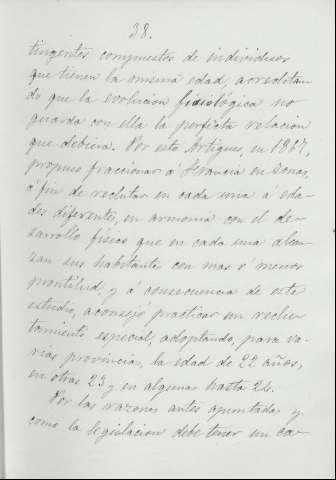 38.
tingentes compuestos de individuos
que tienen la misma edad, acreditan-
do que la evolucion fisiológica no
guarda con ella la perfecta relacion
que debiera. Por esto Artigues, en 1867,
propuso fraccionar á Francia en zonas,
á fin de reclutar en cada una á eda-
des diferentes, en armonía con el de-
sarrollo físico que en cada una alcan-
zan sus habitantes con mas ó menos
prontitud, y á consecuencia de este
estudio, aconsejó practicar un reclu-
tamiento especial, adoptando, para va-
rias provincias, la edad de 22 años,
en otras 23 y en algunas hasta 24.
Por las razones antes apuntadas y
como la legislacion debe tener un ca-